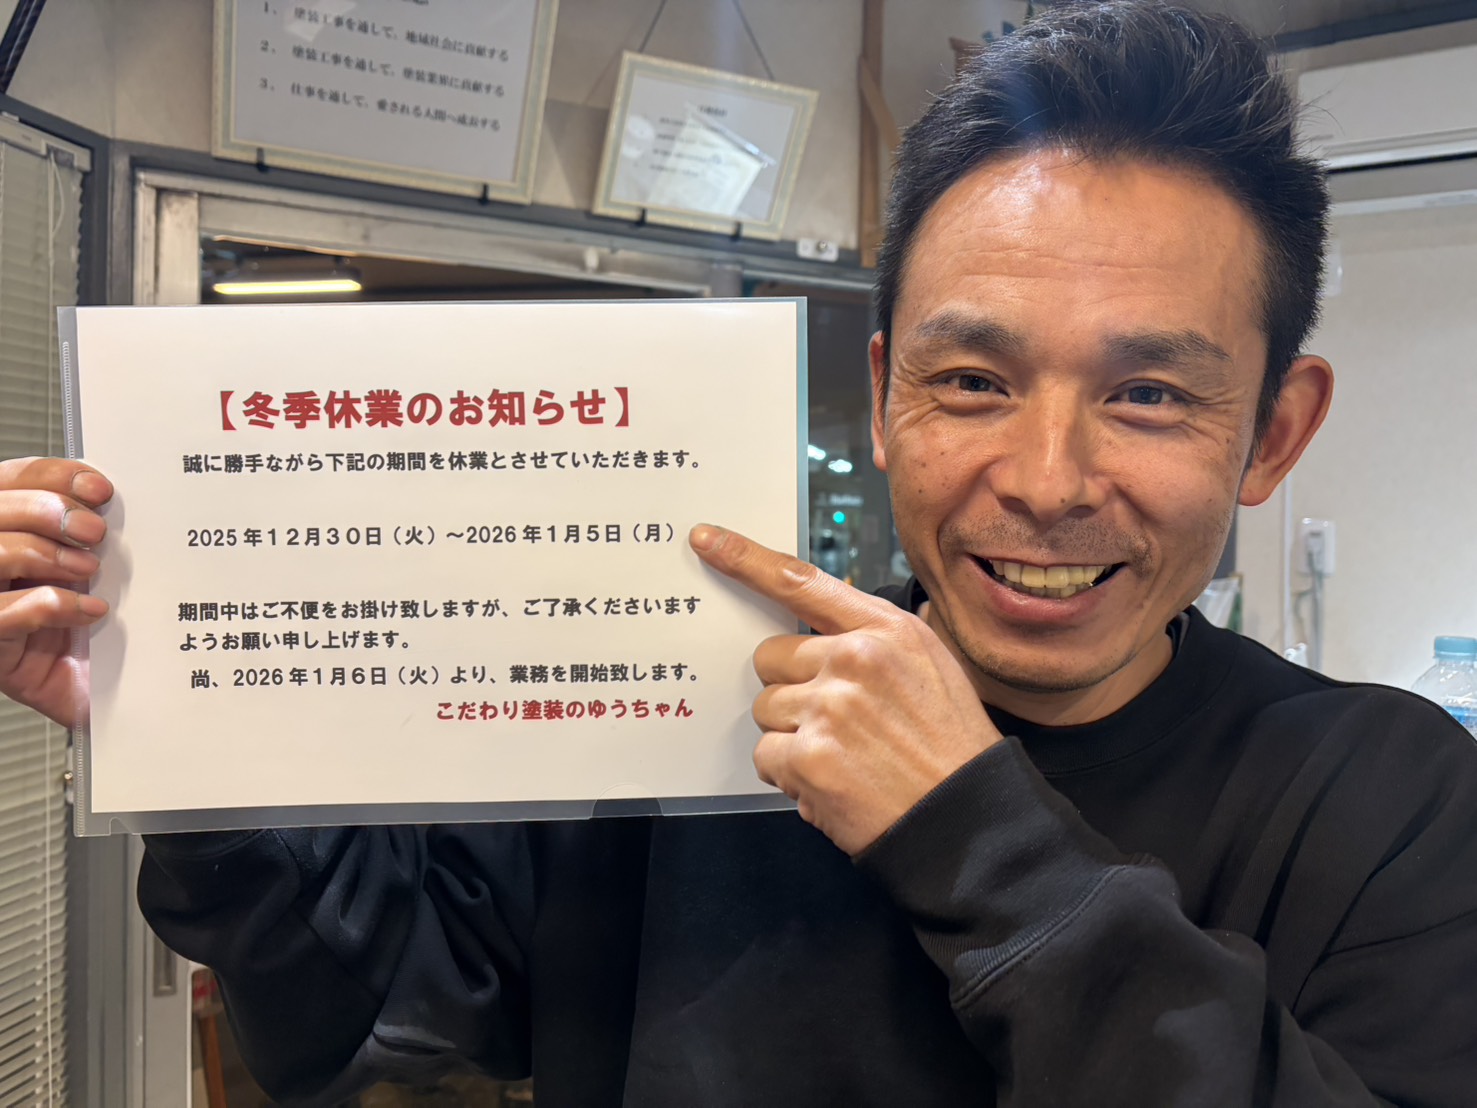 1、 塗装工事を通して、地域社会に貢献する
2、 塗装工事を通して、塗装業界に貢献する
3、 仕事を通して、愛される人間へ成長する
【冬季休業のお知らせ】
誠に勝手ながら下記の期間を休業とさせていただきます。
2025年12月30日（火）～2026年1月5日（月）
期間中はご不便をお掛け致しますが、ご了承くださいます
ようお願い申し上げます。
尚、2026年1月6日（火）より、業務を開始致します。
こだわり塗装のゆうちゃん